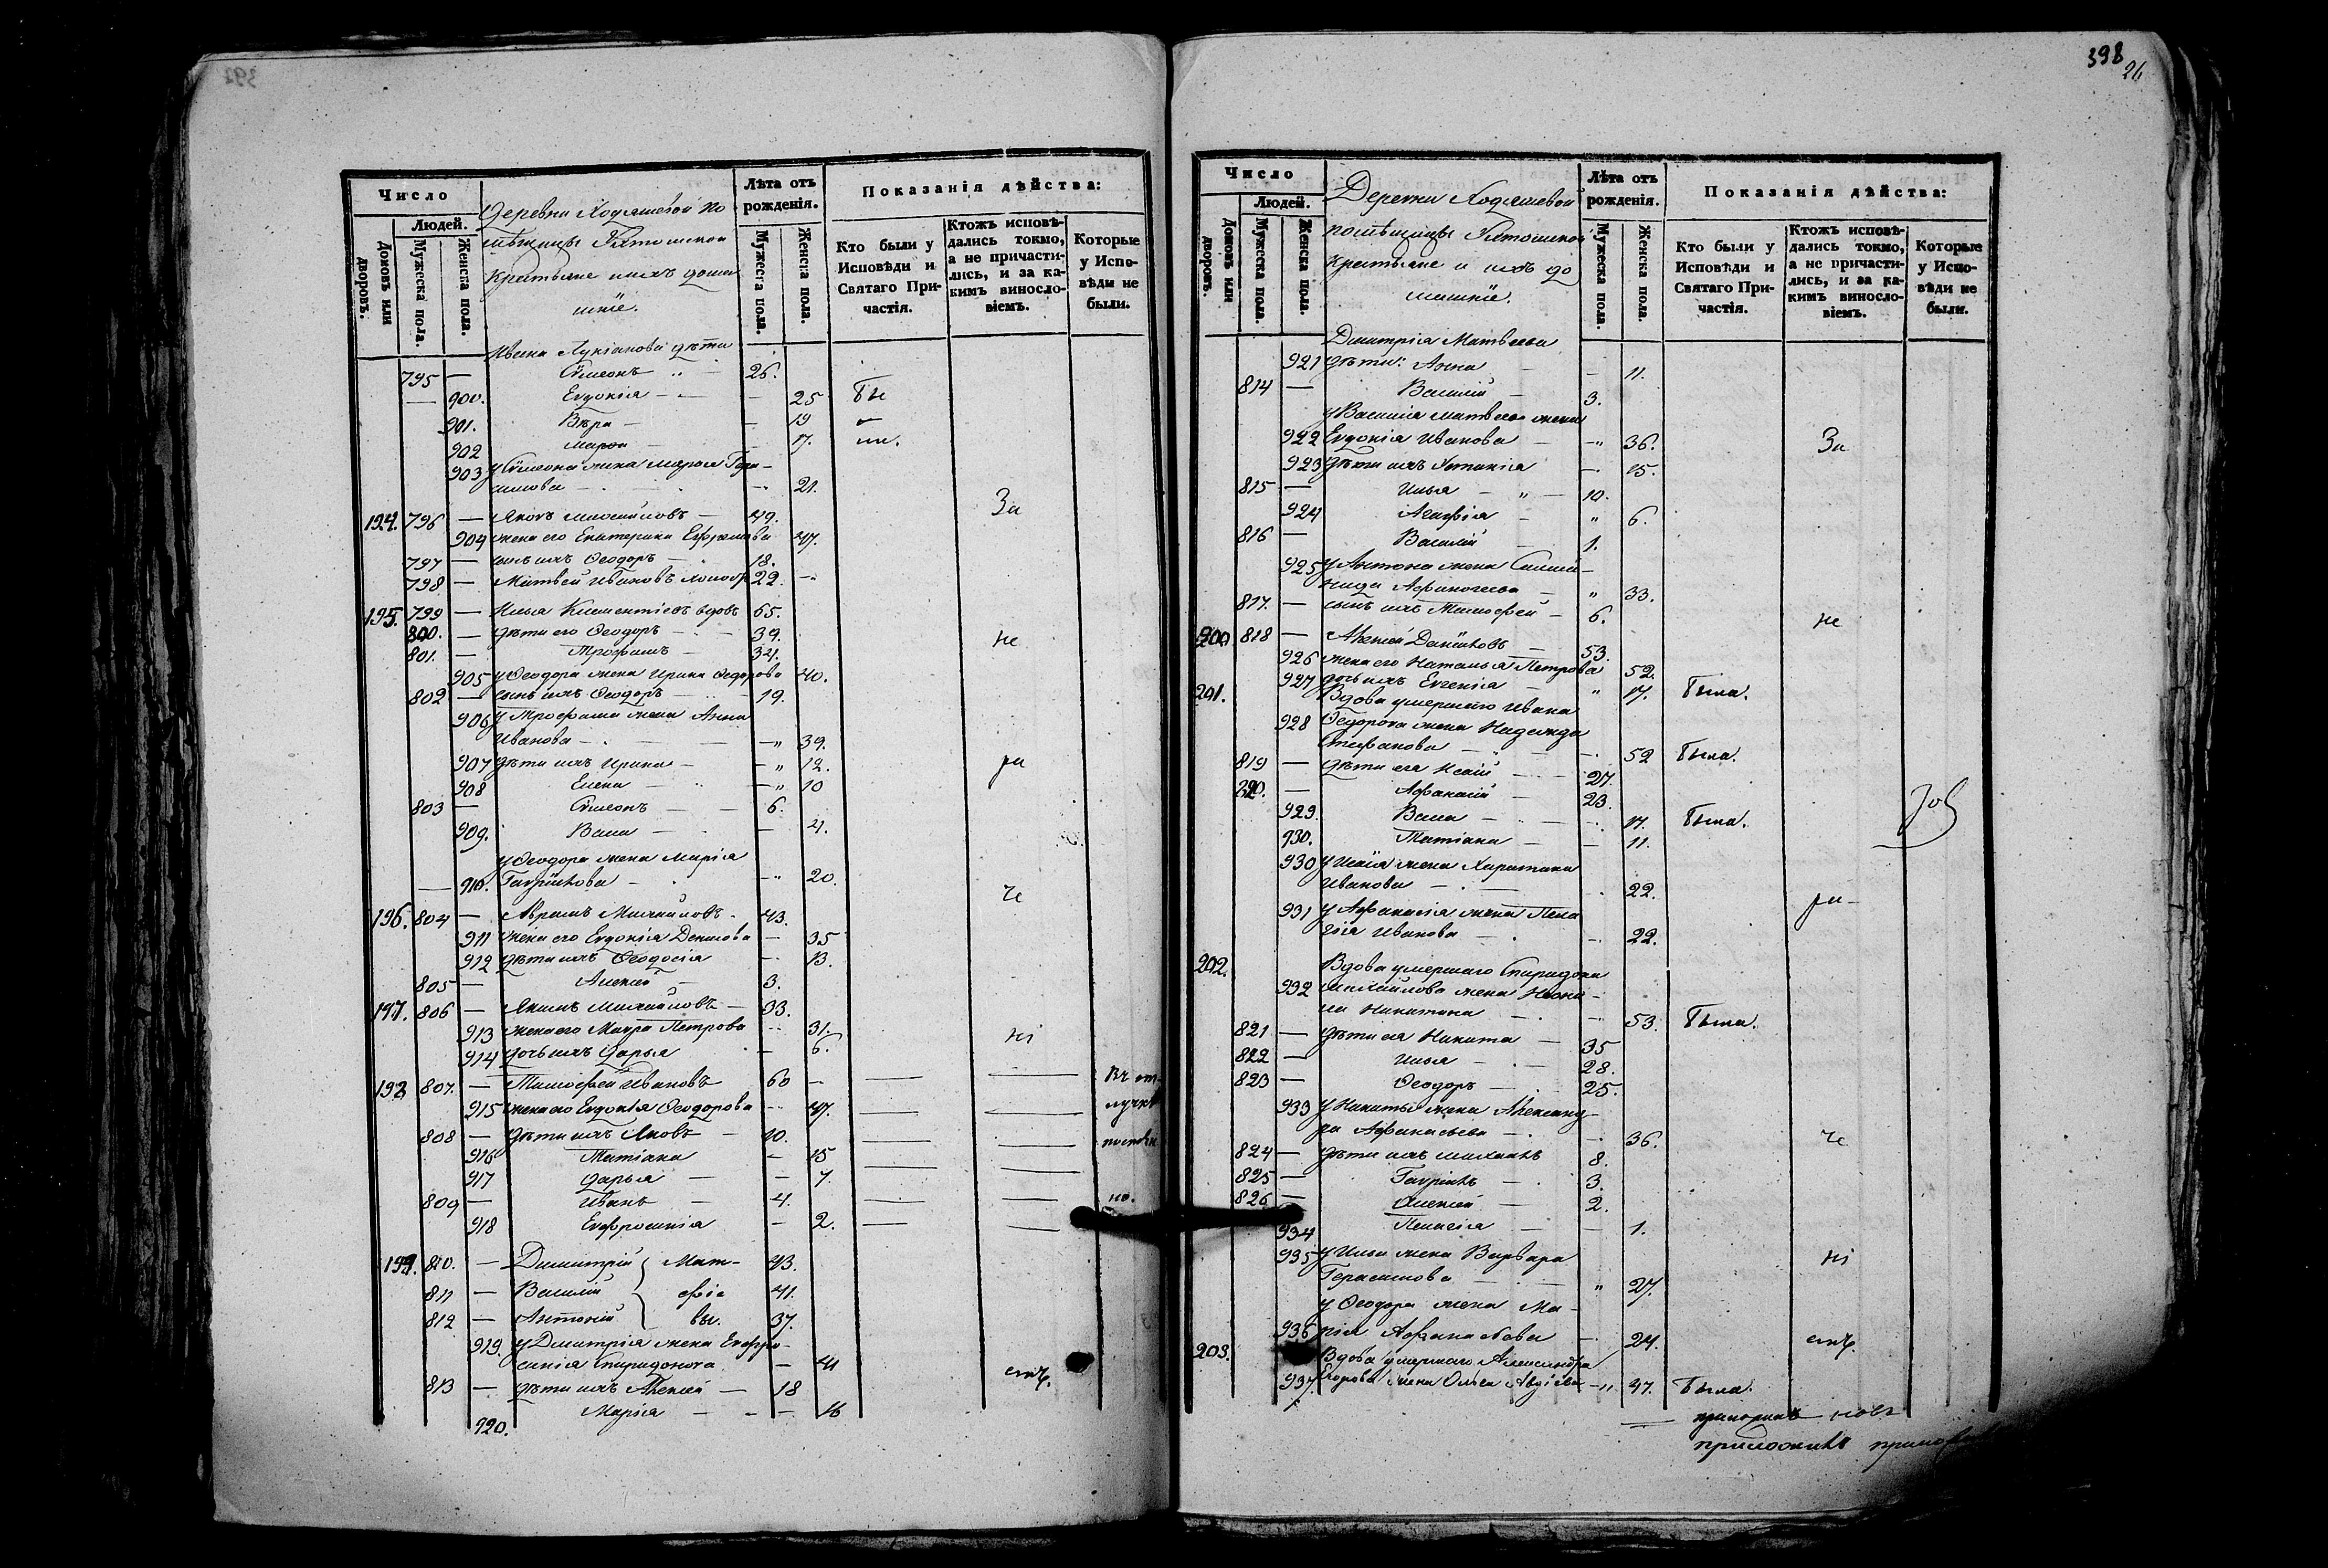 398
26
Число
Людей.
Домовъ или дворовъ.
Мужеска пола.
Женска пола.
Деревни Ходяшевой по
мѣщицы
Крестьяне и ихъ дома
шніе.
Лѣта отъ рожденія.
Мужеска пола.
Женска пола.
Показанія дѣйства:
Кто были у Исповѣди и Святаго Причастія.
Ктожъ исповѣдались токмо, а не причастились, и за какимъ винословіемъ.
Которые у Исповѣди не были.
Ивана Лукіанова дѣти
795 — Сѵмеонъ — 26.
900. Евдокія — — 25 Бы
901. Вѣра — — 19
902 Марѳа — 17. ли.
903 у Сѵмеона жена Марья Гера-
симова — 21. За
194. 796 — Яковъ Михайловъ — 49.
904 жена его Екатерина Ефремова 47.
797 — сынъ ихъ Ѳеодоръ — 18.
798 — Матвей Ивановъ 22.
195. 799 — Илья Климентіевъ вдовъ 65.
800. — дѣти его Ѳеодоръ — 39. не
801. — Трофимъ — 34.
905 у Ѳеодора жена Ирина Ѳедорова 40.
802 — сынъ ихъ Ѳеодоръ — 19.
906 у Трофима жена Анна
Иванова — — 39.
907 дѣти ихъ Ирина — — 12. ра
908 Елена — 10
803 — Сѵмеонъ — 6.
909. Васса — — 4.
у Ѳеодора жена Марія
910. Гаврілова — 20. че
196. 804 — Аврамъ Михайловъ — 43.
911 жена его Евдокія Денисова — 35
912 дѣти ихъ Ѳеодосія — 13.
805 — Алексей — 3.
197. 806 — Якимъ Михайловъ — 33.
913 жена его Мавра Петрова 31. ні
914 дочь ихъ Дарья — 6.
198 807. — Тимофей Ивановъ 60 — — — Въ от-
915 жена его Евдокія Ѳеодорова 47. — — лучкѣ
808 — дѣти ихъ Яковъ — 10. — —
916 Татіана — 15 — —
917 Дарья — — 7. — —
809 — Иванъ — 4. — — но.
918 Евфросинія — 2. — —
199. 810. — Димитрій Мат- 43.
811 — Василій фіе 41.
812 — Антоній вы. 37.
919. у Дмитрія жена Евфро-
синія Спиридонова — 41 емъ.
813 — дѣти ихъ Алексей — 18
920. Марія — — 16
Число
Людей.
Домовъ или дворовъ.
Мужеска пола.
Женска пола.
Деревни Ходяшевой
помѣщицы
Крестьяне и ихъ до
машніе.
Лѣта отъ рожденія.
Мужеска пола.
Женска пола.
Показанія дѣйства:
Кто были у Исповѣди и Святаго Причастія.
Ктожъ исповѣдались токмо, а не причастились, и за какимъ винословіемъ.
Которые у Исповѣди не были.
Димитрія Матвеева
921 дѣти: Анна — — 11.
814 — Василій — 3.
у Василія Матвеева жена
922 Евдокія Иванова — 36. За
923 дѣти ихъ — 15.
815 — Илья — 10.
924 Агафія — 6.
816 — Василій — 1.
925 у Антона жена
Афиногеева — 33.
817. — сынъ ихъ Тимофей — 6. не
200. 818 — Алексей Даніиловъ — 53.
926 жена его Наталья Петрова 52.
927 дочь ихъ Евгенія — 17. Была.
201. Вдова умершаго Ивана
928 Ѳедорова жена Надежда
Стефанова — 52 Была.
819 — дѣти ея Исаій — 27.
820. — Афанасій — 23.
929. Васса — 17. Была.
930. Татіана — — 11.
930 у Исаія жена Харитина
Иванова — 22. ра-
931 у Афанасія жена Пела
гія Иванова — 22.
202. Вдова умершаго Спиридона
932 Михайлова жена Неони-
ла Никитина — 53. Была.
821 — дѣти ея Никита — 35
822 — Илья — 28.
823 — Ѳеодоръ — 25.
933 у Никиты жена Александ-
ра Афанасьева — 36. че
824 — дѣти ихъ Михаилъ 8.
825 — Гавріилъ — 3.
826 — Алексей — 2.
934 Пелагія — — 1.
935 у Ильи жена Варвара ні
Герасимова — 27.
у Ѳеодора жена Ма-
936 рія Афанасьева — 24. емъ.
203. Вдова умершаго Александра
937. Егорова жена Ольга Авдіева — 47. Была.